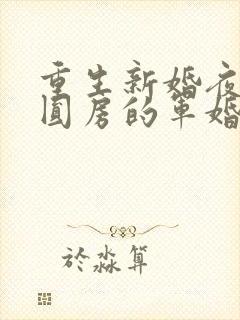 重生新婚夜
圆房的军婚
於淼算